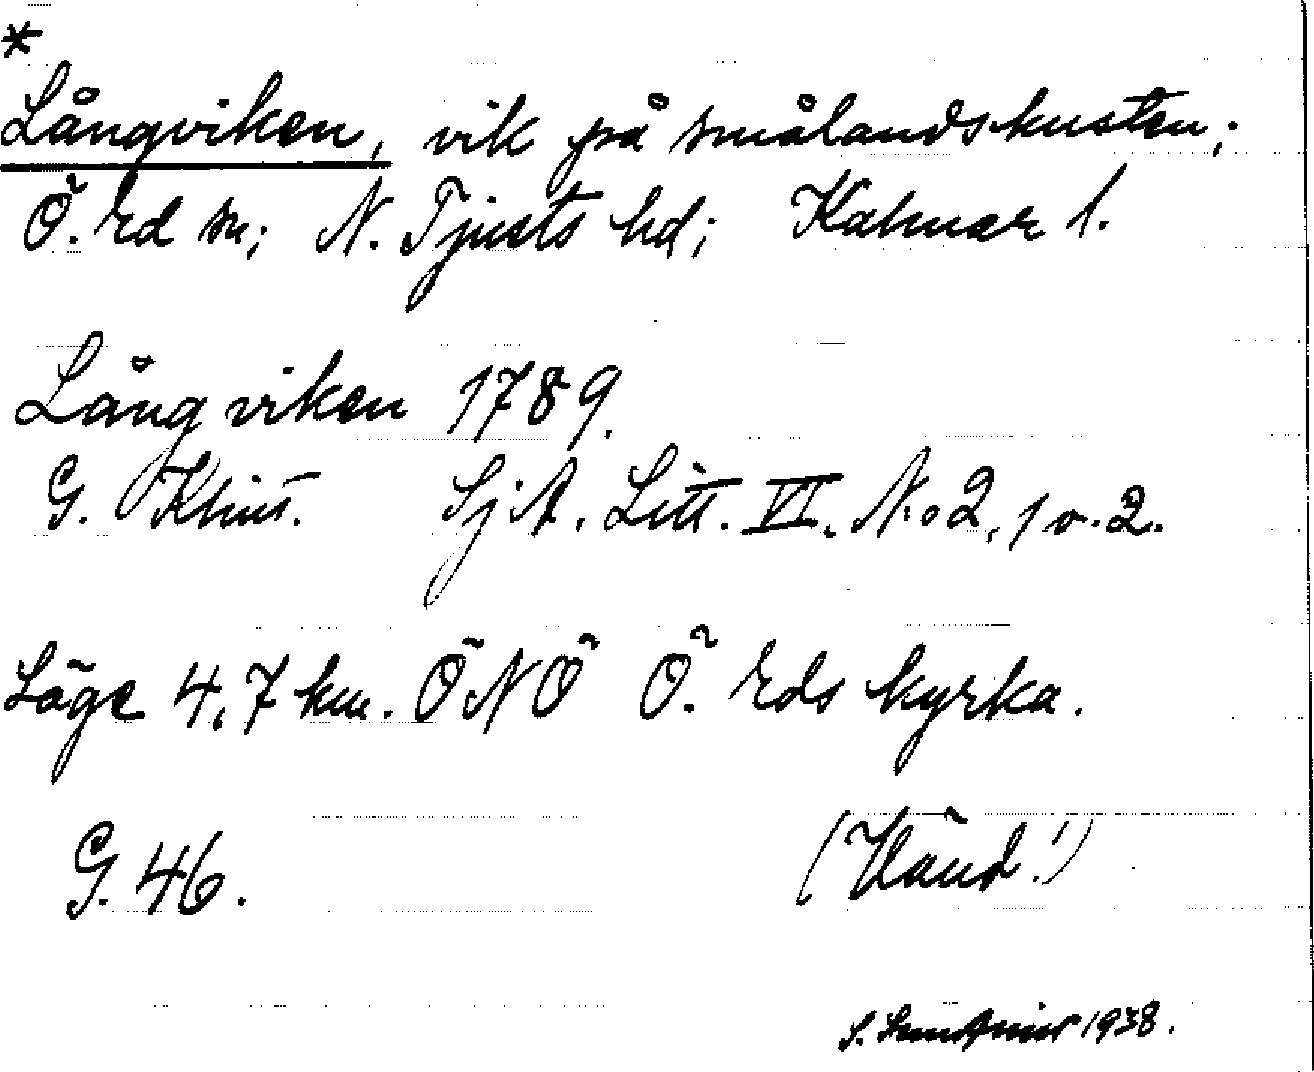 *
Långviken, vik på smålandskusten;
Ö. Ed sn; N. Tjusts hd; Kalmar l.
Långviken 1789.
G. Klint. SjA. Litt. VI. No 2, 1 o. 2.
Läge 4,7 km. ÖNÖ Ö. Eds kyrka.
G. 46. (Vänd!)
S. 1938.